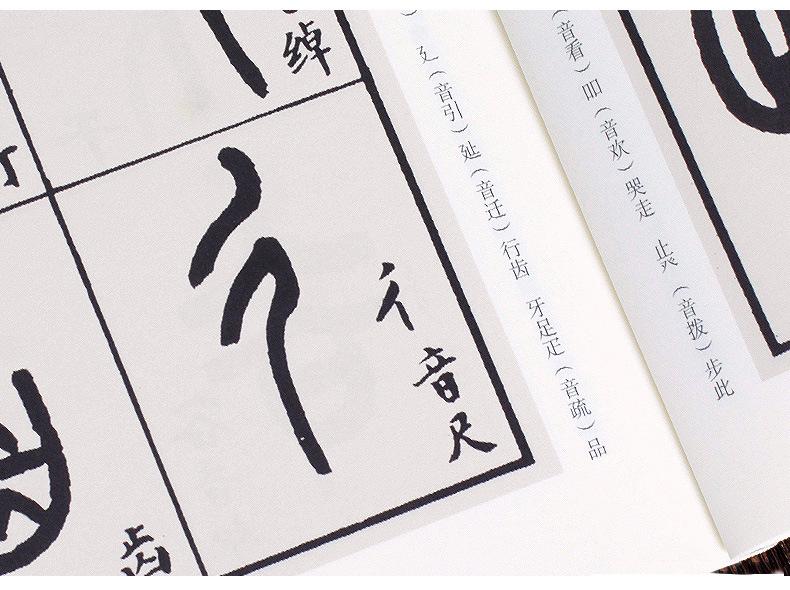 （音看）吅（音欢）哭走 止癶（音拨）步此
）廴（音引）延（音迁）行齿 牙足疋（音疏）品
绰
彳
彳音尺
齿